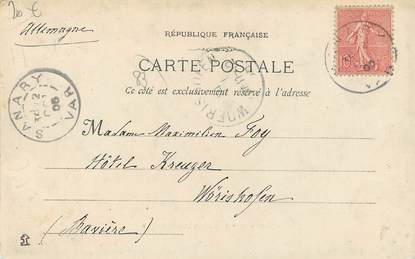 20 €
Allemagne
RÉPUBLIQUE FRANÇAISE
CARTE POSTALE
Ce côté est exclusivement réservé à l'adresse
SANARY
VAR
WOERIS
Madame Maximilien Foy
Hôtel Kreuzer
Wörishofen
(Bavière)